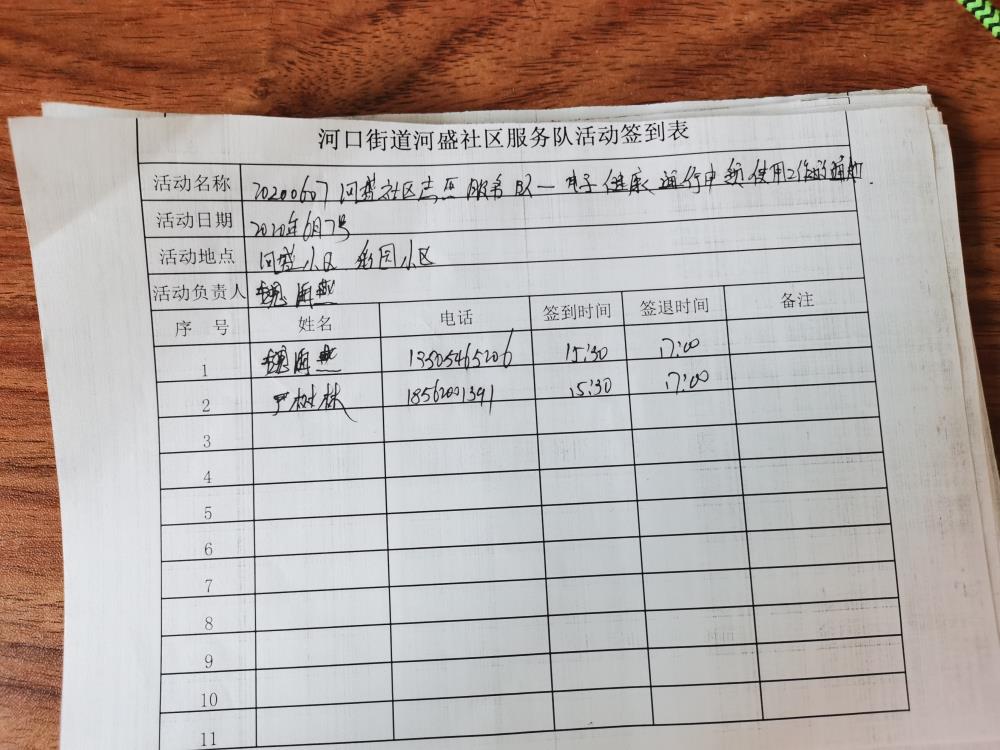 河口街道河盛社区服务队活动签到表
活动名称 20200607河盛社区志愿服务队—电子健康通行申领使用工作的通知.
活动日期 2020年6月7号
活动地点 河盛小区 小区
活动负责人 魏海燕
序 号 姓名 电话 签到时间 签退时间 备注
1 魏海燕 13505465206 15:30 17:00
2 严树林 18562001391 15:30 17:00
3
4
5
6
7
8
9
10
11